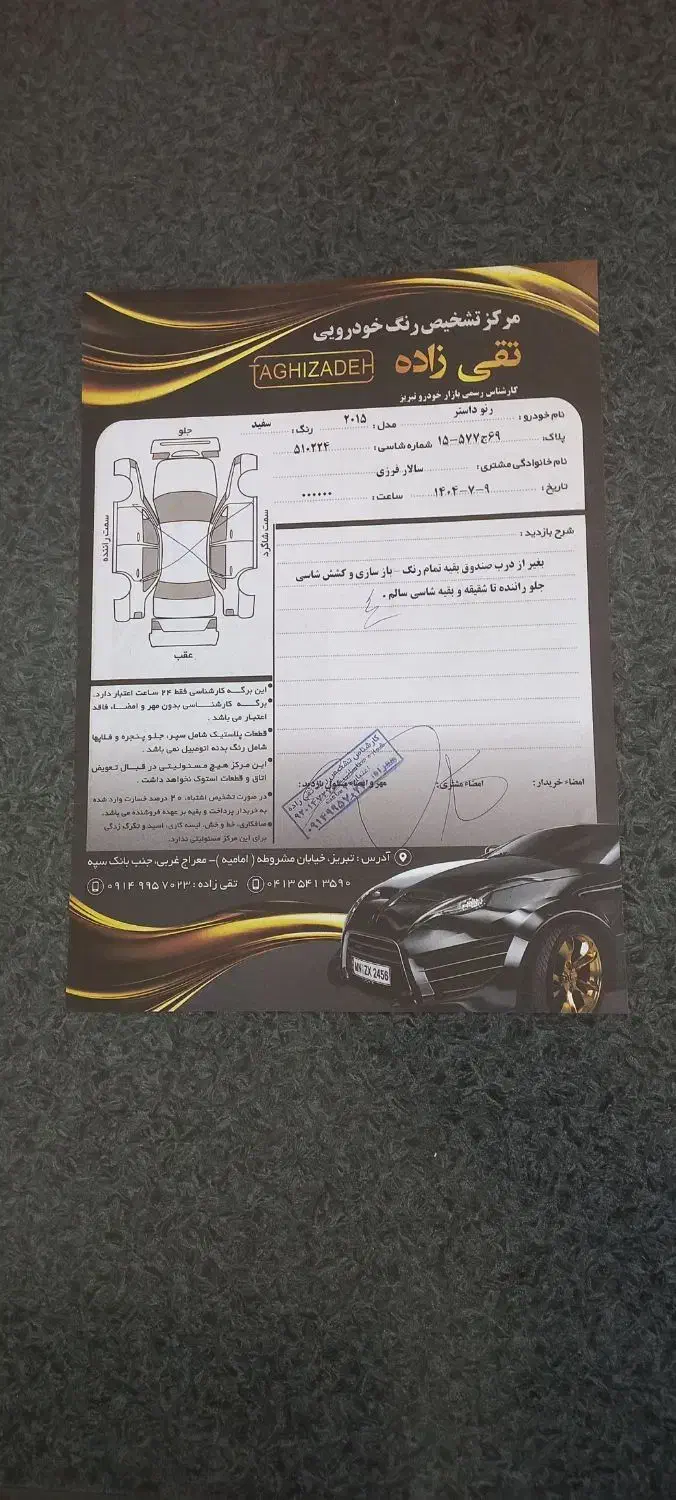 مرکز تشخیص رنگ خودرویی
تقی زاده
TAGHIZADEH
کارشناس رسمی بازار خودرو تبریز
نام خودرو: رنو داستر مدل: ۲۰۱۵ رنگ: سفید
پلاک: ۶۹ج۵۷۷-۱۵ شماره شاسی: ۵۱۰۲۲۴
نام خانوادگی مشتری: سالار فرزی
تاریخ: ۱۴۰۴-۷-۹ ساعت: ۰۰۰۰۰۰
جلو
سمت راننده
سمت شاگرد
عقب
شرح بازدید:
بغیر از درب صندوق بقیه تمام رنگ - باز سازی و کشش شاسی
جلو راننده تا شقیقه و بقیه شاسی سالم .
این برگه کارشناسی فقط ۲۴ ساعت اعتبار دارد.
برگه کارشناسی بدون مهر و امضاء، فاقد
اعتبار می باشد.
قطعات پلاستیک شامل سپر، جلو پنجره و فلاپها
شامل رنگ بدنه اتومبیل نمی باشد.
این مرکز هیچ مسئولیتی در قبال تعویض
اتاق و قطعات استوک نخواهد داشت.
در صورت تشخیص اشتباه، ۲۰ درصد خسارت وارد شده
به خریدار پرداخت و بقیه بر عهده فروشنده می باشد.
صافکاری، خط و خش، لیسه گاری، اسید و تگرگ زدگی
برای این مرکز مسئولیتی ندارد.
امضاء خریدار: امضاء مشتری: مهر و امضاء مسئول بازدید:
آدرس : تبریز، خیابان مشروطه ( امامیه )- معراج غربی، جنب بانک سپه
۰۴۱۳ ۵۴۱ ۳۵۹۰ تقی زاده : ۰۹۱۴ ۹۹۵ ۷۰۲۳
MN ZX 2456